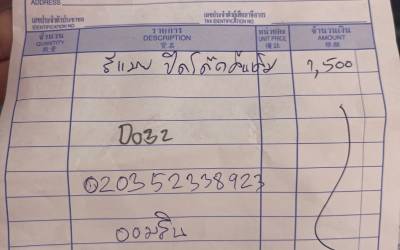 ADDRESS
เลขประจำตัวประชาชน เลขประจำตัวผู้เสียภาษีอากร
IDENTIFICATION NO. TAX IDENTIFICATION NO.
จำนวน รายการ หน่วยละ จำนวนเงิน
QUANTITY DESCRIPTION UNIT PRICE AMOUNT
รีแมพ ปิดโค๊ด 1,500
Do32
020352338923
ออมสิน